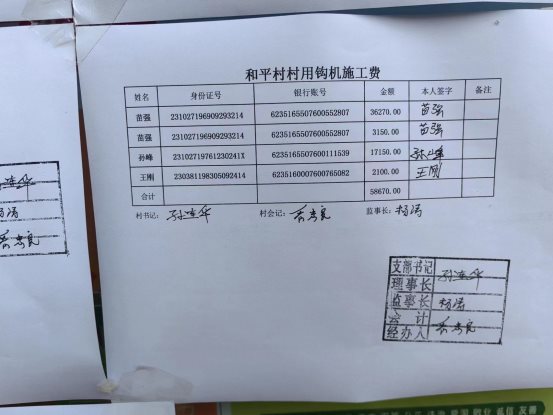 和平村村用钩机施工费
姓名 身份证号 银行账号 金额 本人签字 备注
苗强 231027196909293214 6235165507600552807 36270.00 苗强
苗强 231027196909293214 6235165507600552807 3150.00 苗强
孙峰 23102719761230241X 6235165507600111539 17150.00 孙峰
王刚 230381198305092414 6235160007600765082 2100.00 王刚
合计 58670.00
村书记： 村会记： 监事长：杨涛
支部书记
理事长
监事长 杨涛
会计
经办人